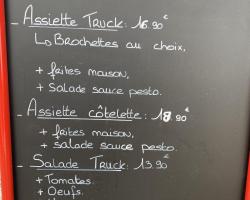 - Assiette Truck: 16.90€
↳ Brochettes au choix,
+ frites maison,
+ Salade sauce pesto.
- Assiette côtelette: 18.90€
+ frites maison,
+ salade sauce pesto.
- Salade Truck: 13.90€
+ Tomates.
+ Oeufs.